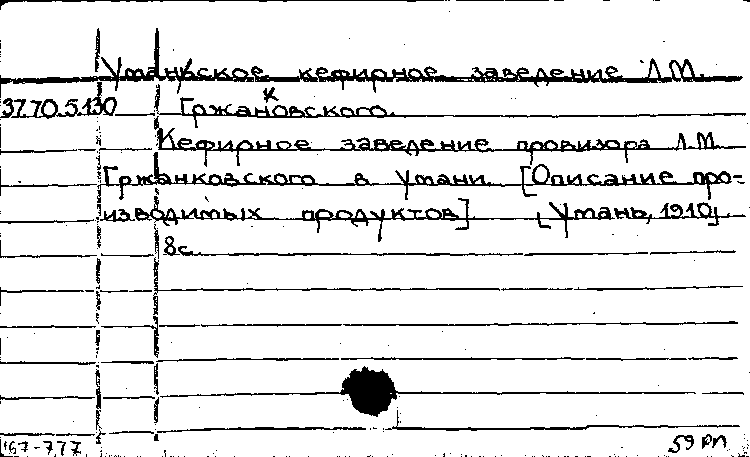 Уманьское кефирное заведение Л.М.
37.70.5.130 Гржанковского.
Кефирное заведение провизора Л.М.
Гржанковского в Умани. [Описание про-
изводимых продуктов] [Умань, 1910]
8с.
'67-777
59 РП